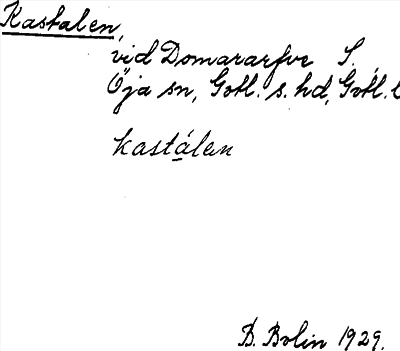 Kastalen,
vid Domararfve S.
Öja sn, Gotl. s. hd, Gotl. l
kastálen
B. Bolin 1929.